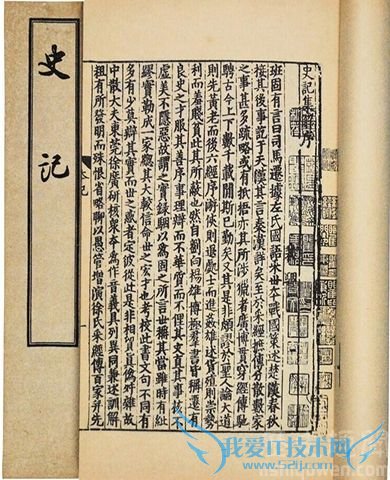 史記
史記集解序
班固有言曰司馬遷據左氏國語采世本戰國策述楚漢春秋
接其後事訖于天漢其言秦漢詳矣至於采經摭傳分散數家
之事甚多疏略或有抵捂亦其所涉獵者廣博貫穿經傳馳
騁古今上下數千載間斯已勤矣又其是非頗謬於聖人論大道
則先黃老而後六經序遊俠則退處士而進姦雄述貨殖則崇勢
利而羞賤貧此其所蔽也然自劉向楊雄博極羣書皆稱遷有
良史之才服其善序事理辯而不華質而不俚其文直其事核不
虛美不隱惡故謂之實錄駰以為固之所言世稱其當雖時有紕
繆實勒成一家總其大較信命世之宏才也考校此書文句不同有
多有少莫辯其實而世之惑者定彼從此是非相貿真偽舛雜故
中散大夫東莞徐廣研核衆本為作音義具列異同兼述訓解
粗有所發明而殊恨省略聊以愚管增演徐氏采經傳百家并先
我爱IT技术网
www.52ij.com